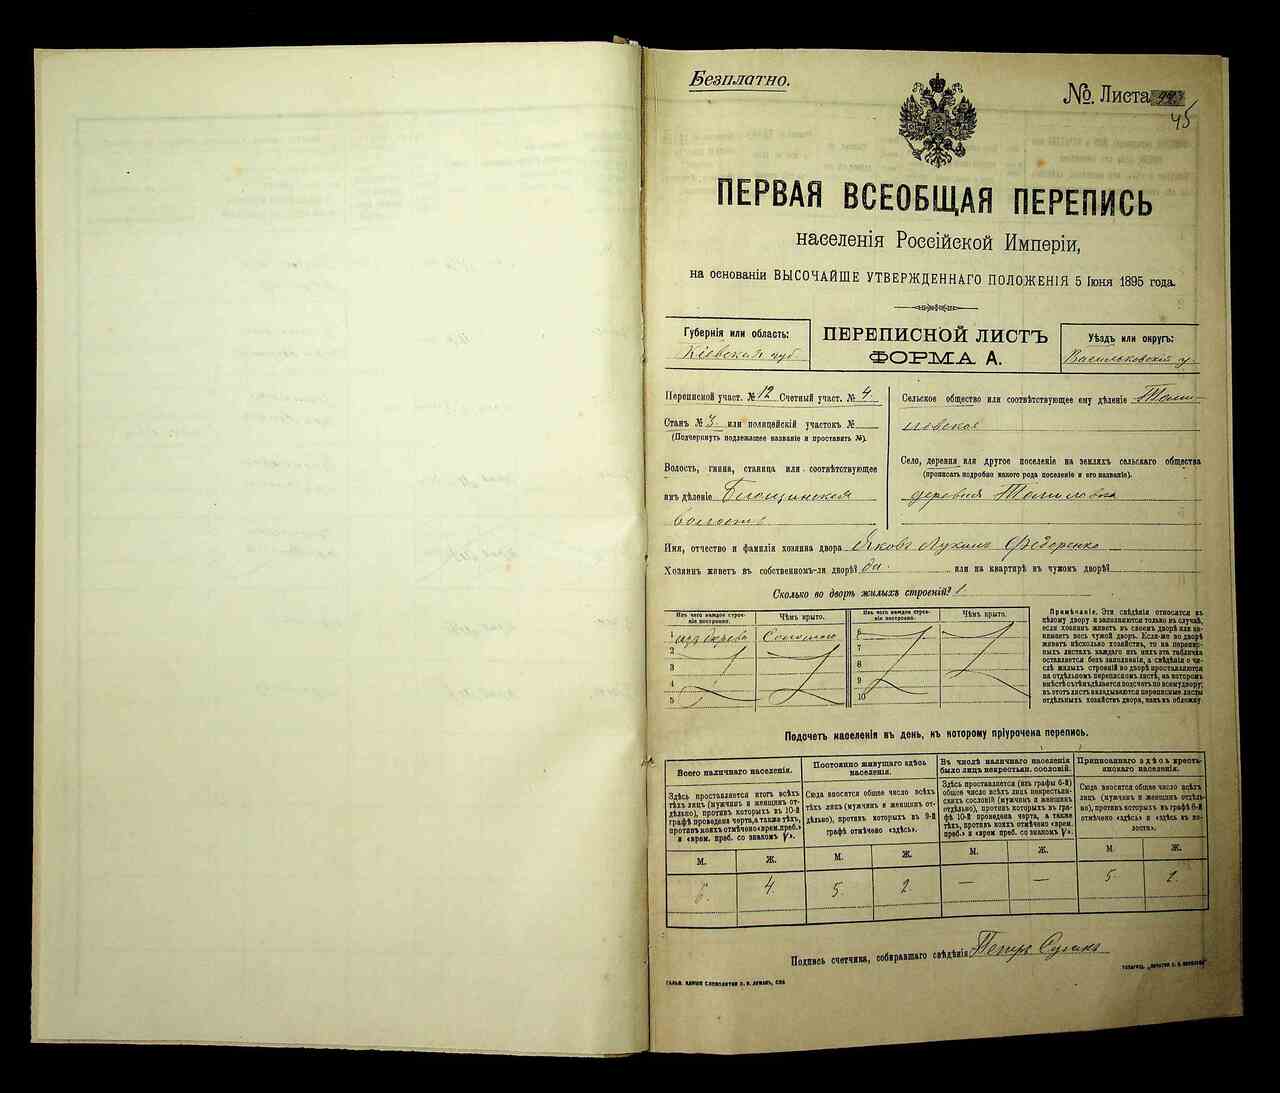 Безплатно.
№. Листа
45
ПЕРВАЯ ВСЕОБЩАЯ ПЕРЕПИСЬ
населенія Россійской Имперіи,
на основаніи ВЫСОЧАЙШЕ УТВЕРЖДЕННАГО ПОЛОЖЕНІЯ 5 Іюня 1895 года.
Губернія или область:
Кіевская губ.
ПЕРЕПИСНОЙ ЛИСТЪ
ФОРМА А.
Уѣздъ или округъ:
Васильковскій у.
Переписной участ. № 12 Счетный участ. № 4.
Станъ № 3. или полицейскій участокъ №
(Подчеркнуть подлежащее названіе и проставить №).
Волость, гмина, станица или соотвѣтствующее
имъ дѣленіе
волость.
Сельское общество или соотвѣтствующее ему дѣленіе Томи-
ловское
Село, деревня или другое поселеніе на земляхъ сельскаго общества
(прописать подробно какого рода поселеніе и его названіе).
деревня Томиловка
Имя, отчество и фамилія хозяина двора Яковъ Лукинъ Федоренко
Хозяинъ живетъ въ собственномъ-ли дворѣ? да. или на квартирѣ въ чужомъ дворѣ?
Сколько во дворѣ жилыхъ строеній? 1.
Изъ чего каждое строе-
ніе построено.
Чѣмъ крыто.
Изъ чего каждое строе-
ніе построено.
Чѣмъ крыто.
1 изъ дерева Соломою
2
3
4
5
6
7
8
9
10
Примѣчаніе. Эти свѣдѣнія относятся къ
цѣлому двору и заполняются только въ случаѣ,
если хозяинъ живетъ въ своемъ дворѣ или за-
нимаетъ весь чужой дворъ. Если-же во дворѣ
живетъ нѣсколько хозяйствъ, то на перепис-
ныхъ листахъ каждаго изъ нихъ эта табличка
оставляется безъ заполненія, а свѣдѣнія о чи-
слѣ жилыхъ строеній во дворѣ проставляются
на отдѣльномъ переписномъ листѣ, на которомъ
вмѣстѣ съ тѣмъ дѣлается подсчетъ по всему двору;
въ этотъ листъ вкладываются переписные листы
отдѣльныхъ хозяйствъ двора, какъ въ обложку.
Подсчетъ населенія въ день, къ которому пріурочена перепись.
Всего наличнаго населенія.
Здѣсь проставляется итогъ всѣхъ
тѣхъ лицъ (мужчинъ и женщинъ от-
дѣльно), противъ которыхъ въ 10-й
графѣ проведена черта, а также тѣхъ,
противъ коихъ отмѣчено «врем. преб.»
и «врем. преб. со знакомъ V».
Постоянно живущаго здѣсь
населенія.
Сюда вносятъ общее число всѣхъ
тѣхъ лицъ (мужчинъ и женщинъ от-
дѣльно), противъ которыхъ въ 9-й
графѣ отмѣчено «здѣсь».
Въ числѣ наличнаго населенія
было лицъ некрестьян. сословій.
Здѣсь проставляется (изъ графы 6-й)
общее число всѣхъ лицъ некрестьян-
скихъ сословій (мужчинъ и женщинъ
отдѣльно), противъ которыхъ въ гра-
фѣ 10-й проведена черта, а также
тѣхъ, противъ коихъ отмѣчено «врем.
преб.» и «врем. преб. со знакомъ V».
Приписаннаго здѣсь кресть-
янскаго населенія.
Сюда вносятъ общее число всѣхъ
лицъ (мужчинъ и женщинъ отдѣль-
но), противъ которыхъ въ графѣ 8-й
отмѣчено «здѣсь» и «здѣсь въ во-
лости».
М. Ж. М. Ж. М. Ж. М. Ж.
6. 4. 5. 2. — — 5. 2.
Подпись счетчика, собиравшаго свѣдѣнія Петръ